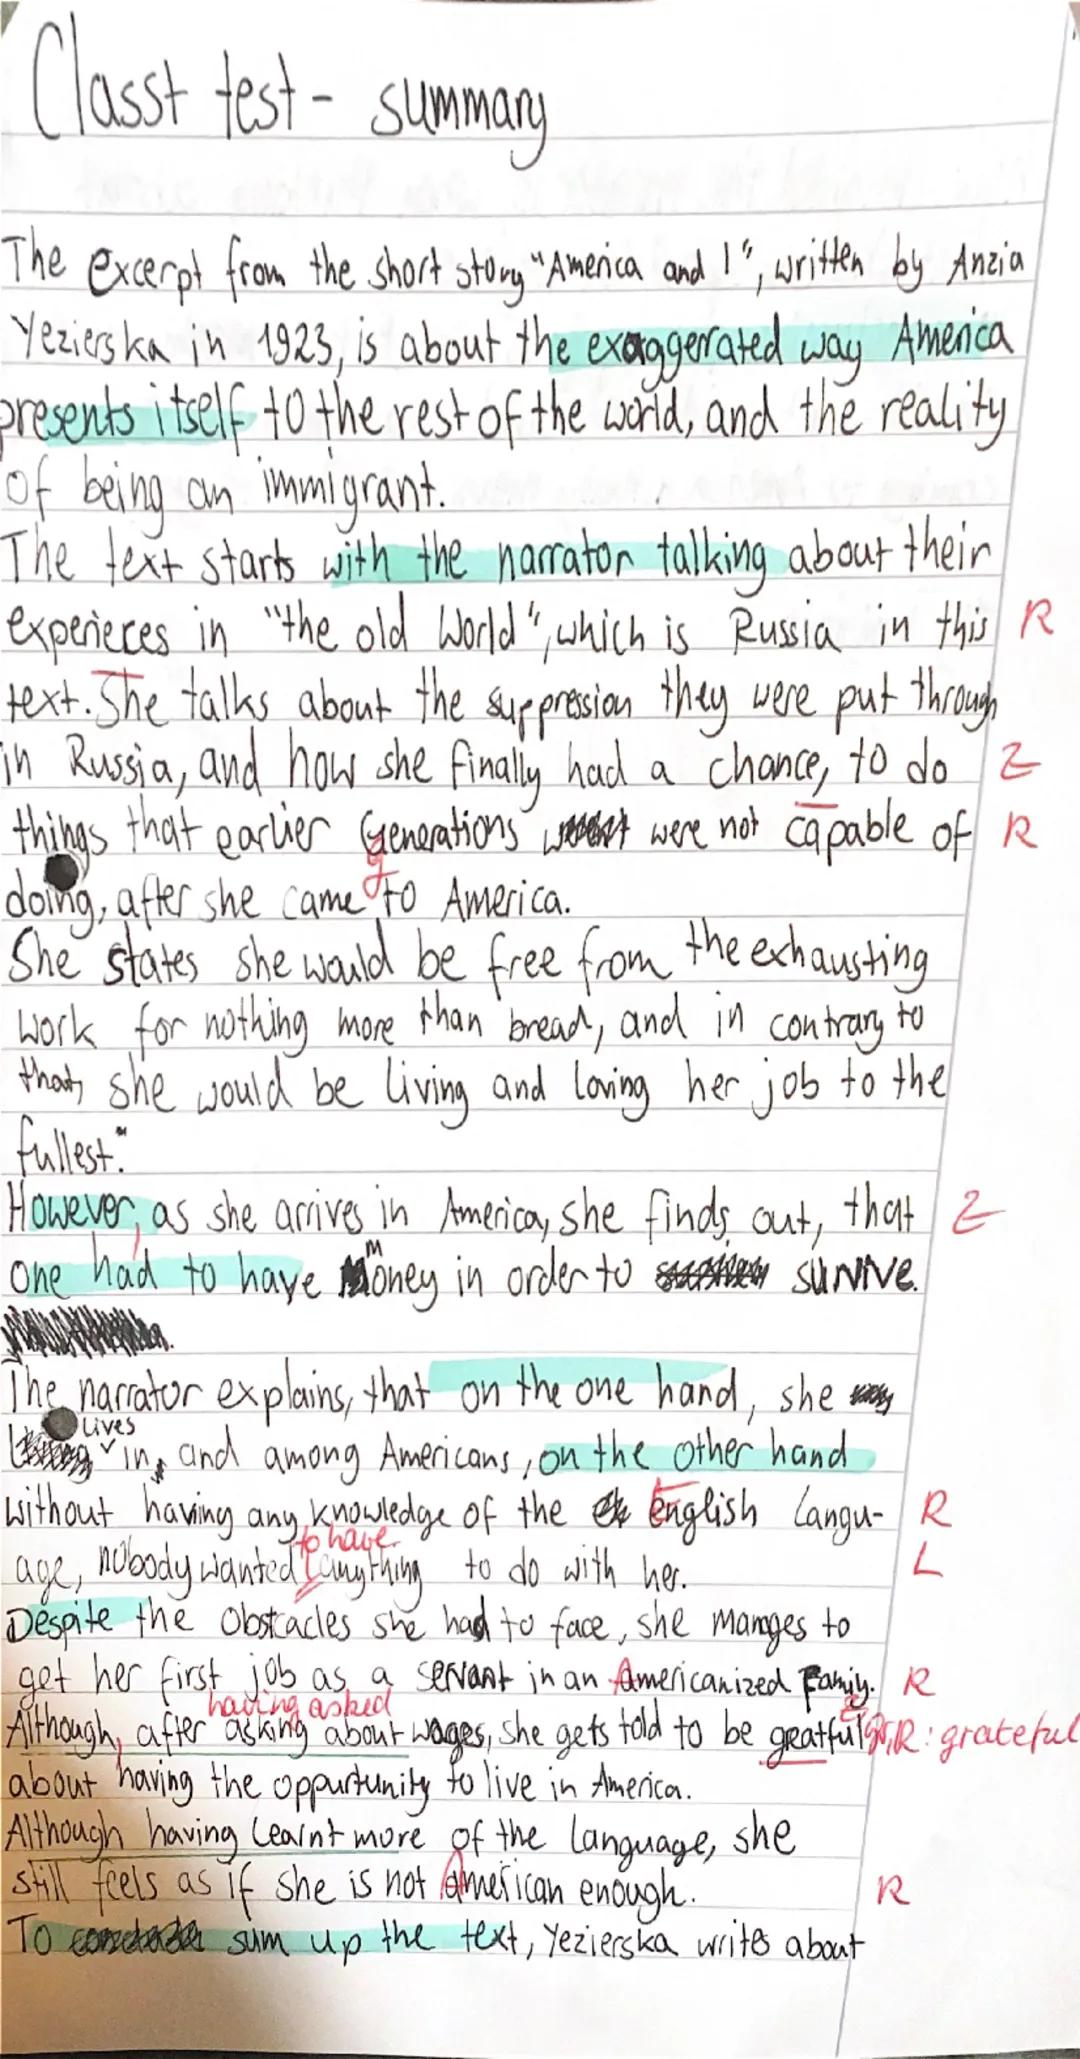 Classt test - summary
The excerpt from the short story "America and I", written by Anzia
Yezierska in 1923, is about the exaggerrated way America
presents itself to the rest of the world, and the reality
of being an immigrant.
The text starts with the narrator talking about their
experieces in "the old World", which is Russia in this R
text. She talks about the suppression they were put through
in Russia, and how she finally had a chance, to do Z
things that earlier Generations were not capable of R
g
doing, after she came to America.
She states she would be free from the exhausting
work for nothing more than bread, and in contrary to
that, she would be living and loving her job to the
fullest."
However, as she arrives in America, she finds out, that Z
one had to have money in order to survive.
The narrator explains, that on the one hand, she
lives
in, and among Americans, on the other hand
without having any knowledge of the English langu- R
to have
age, nobody wanted anything to do with her. L
Despite the obstacles she had to face, she manges to
get her first job as a servant in an Americanized Family. R
having asked
Although, after asking about wages, she gets told to be greatful Gr, R: grateful
about having the oppurtunity to live in America.
Although having learnt more of the language, she
still feels as if she is not American enough. R
To sum up the text, Yezierska writes about